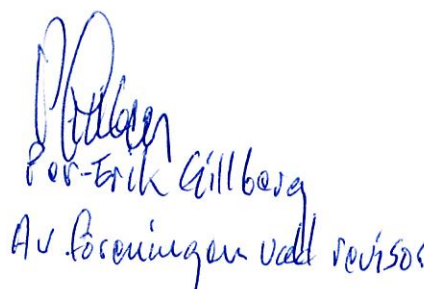 Per-Erik Gillberg
Av föreningen vald revisor